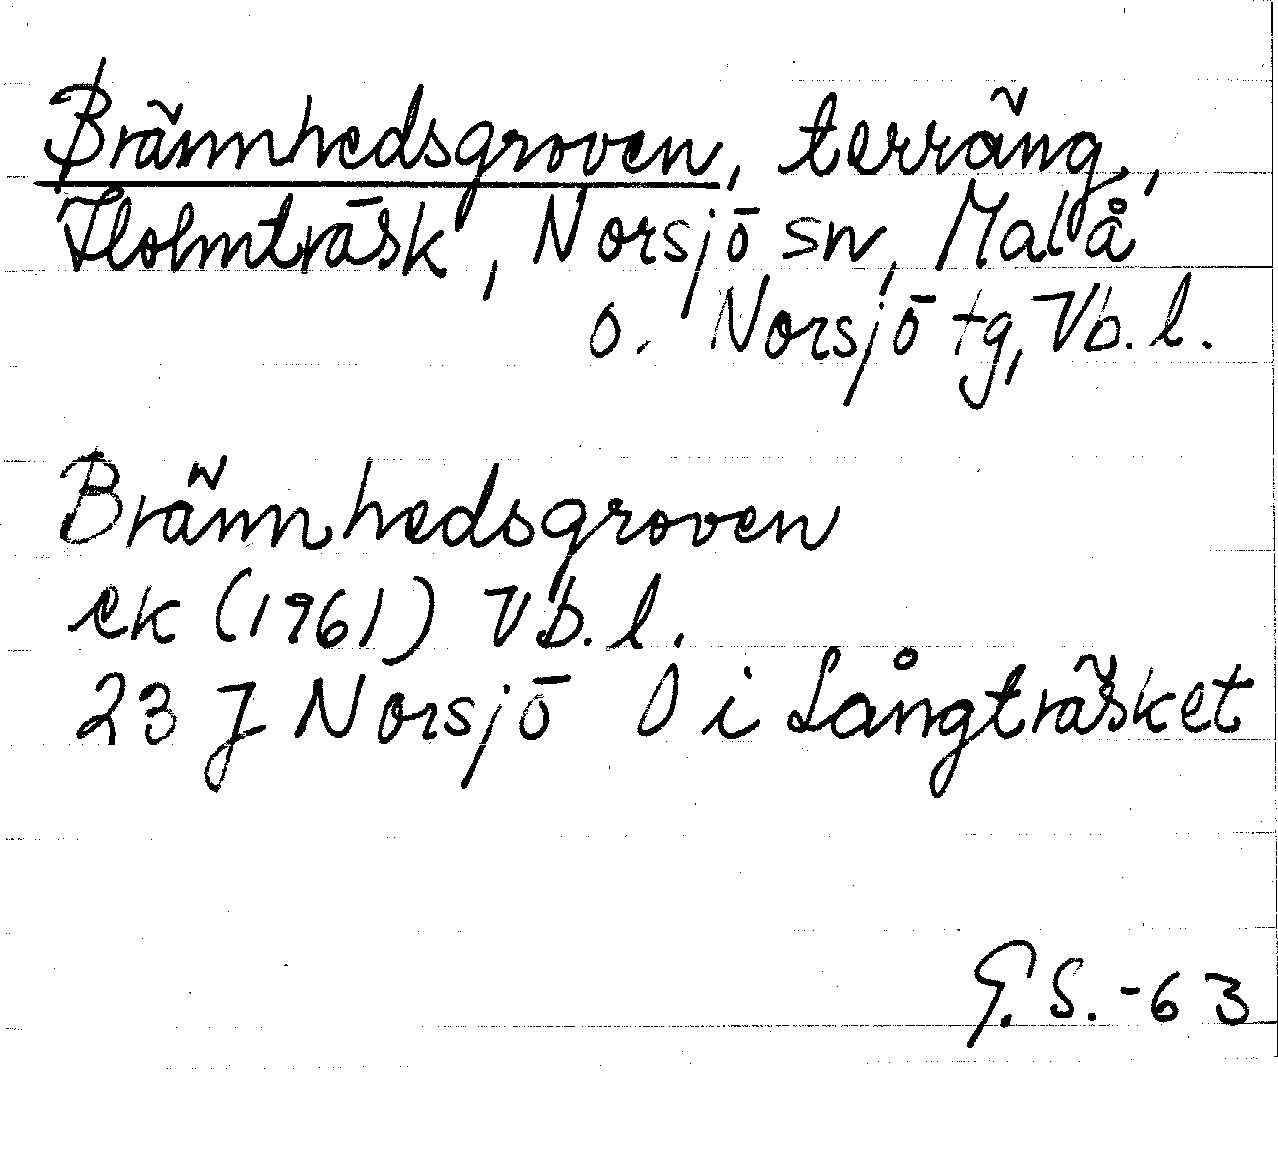 Brännhedsgroven, terräng,
Holmträsk, Norsjö sn, Malå
o. Norsjö tg, Vb. l.
Brännhedsgroven
ek (1961) Vb. l.
23 J Norsjö O i Långträsket
G. S. -63